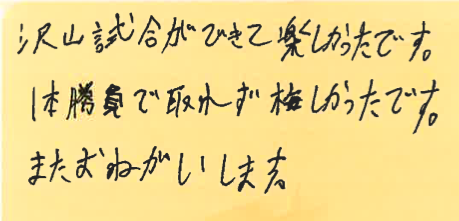 沢山試合ができて楽しかったです。
1本勝負で取れず悔しかったです。
またおねがいします。